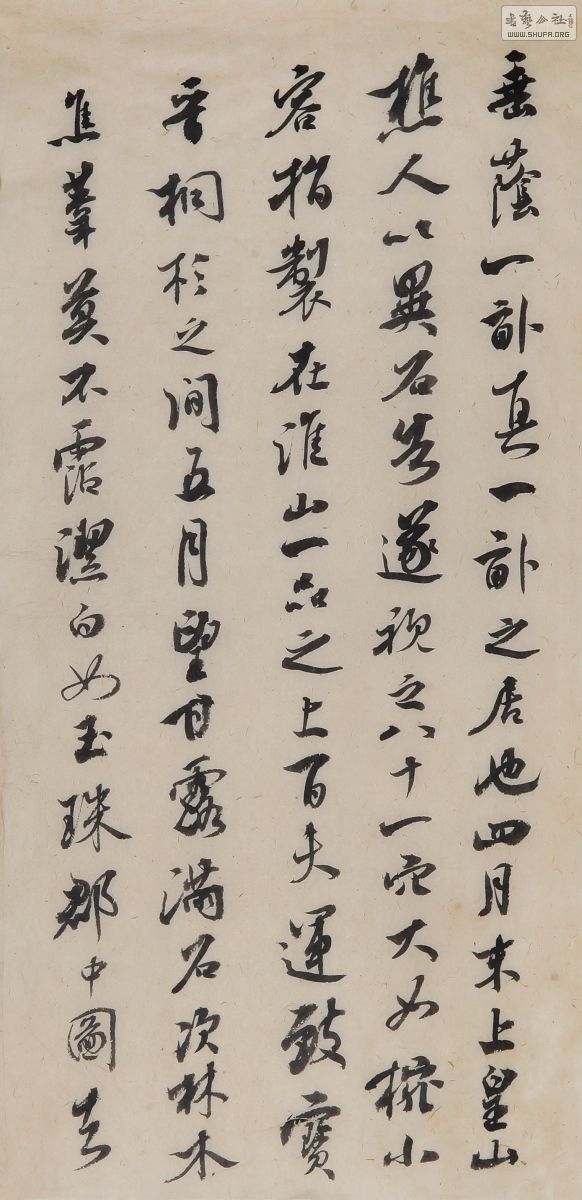 垂蔭一畝真一畝之居也四月末上皇山
樵人以異石告遂視之八十一穴大如椀小
容指製在淮山一品之上百夫運致寶
晉桐杉之間五月望甘露滿石次林木
焦葦莫不霑潔白如玉珠郡中圖去
書藝公社
WWW.SHUFA.ORG